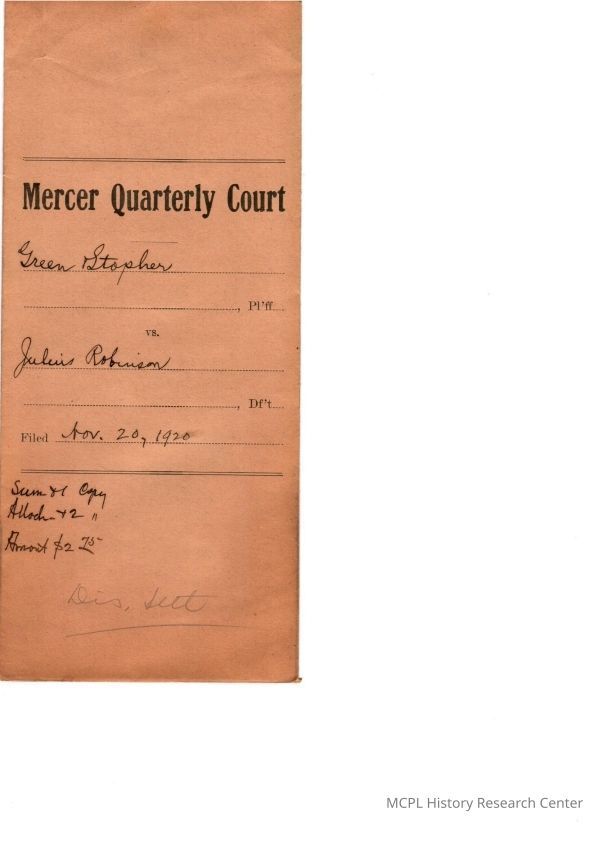 Mercer Quarterly Court
Green Stopher
, Pl'ff.
vs.
Julius Robinson
, Df't.
Filed Nov. 20, 1920
Sum & 1 Copy
Attach & 2 "
$2 75
Dis. Sett
MCPL History Research Center